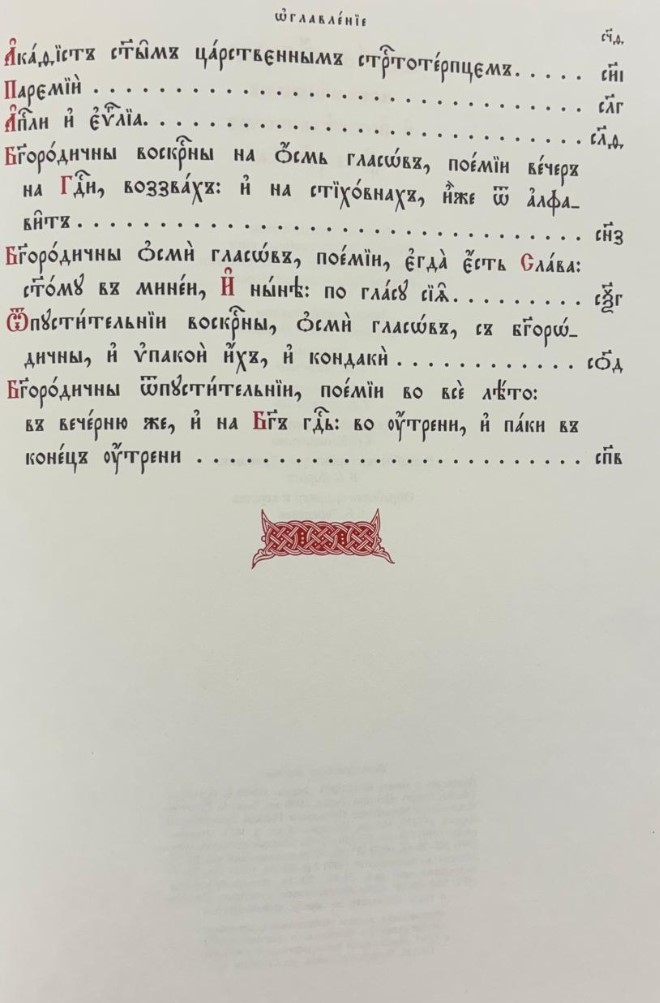 Ѡ҆главле́нїе
сч҃ѳ
А҆ка́ѳїстъ ст҃ы̑мъ ца́рственнымъ стрⷭ҇тоте́рпцемъ. . . . . . сн҃і
Паремїѝ . . . . . . . . . . . . . . . . . . . . . . . . . . . . . . . . . сл҃г
А҆пⷭ҇ли и҆ є҆ѵⷢ҇лїа. . . . . . . . . . . . . . . . . . . . . . . . . . . . . сл҃ѳ
Бг҃оро́дичны воскрⷭ҇ны на ѻ҆́смь гласѡ́въ, пое́мїи ве́черъ
на Гдⷭ҇и, воззва́хъ: и҆ на стїхо́внахъ, и҆́же ѿ а҆лфа-
ви̑тъ . . . . . . . . . . . . . . . . . . . . . . . . . . . . . . . . . сн҃з
Бг҃оро́дичны ѻ҆́смѝ гласѡ́въ, пое́мїи, є҆гда̀ є҆́сть Сла́ва:
ст҃о́мꙋ въ мине́и, И҆ ны́нѣ: по гла́сꙋ сїѧ̑. . . . . . . . . сѯ҃г
Ѿпꙋсти́тельнїи воскрⷭ҇ны, ѻ҆́смѝ гласѡ́въ, съ бг҃оро́-
дичны, и҆ ѵ҆пакоѝ и҆́хъ, и҆ кондакѝ . . . . . . . . . . . . . со҃д
Бг҃оро́дичны ѿпꙋсти́тельнїи, пое́мїи во всѐ лѣ́то:
въ вече́рню же, и҆ на Бг҃ъ гдⷭ҇ь: во ᲂу҆́трени, и҆ па́ки въ
коне́цъ ᲂу҆́трени . . . . . . . . . . . . . . . . . . . . . . . . . сп҃в